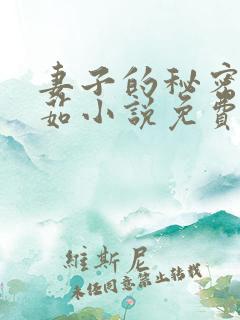 妻子的秘密
茹小说免费
維斯尼
未经同意禁止转载